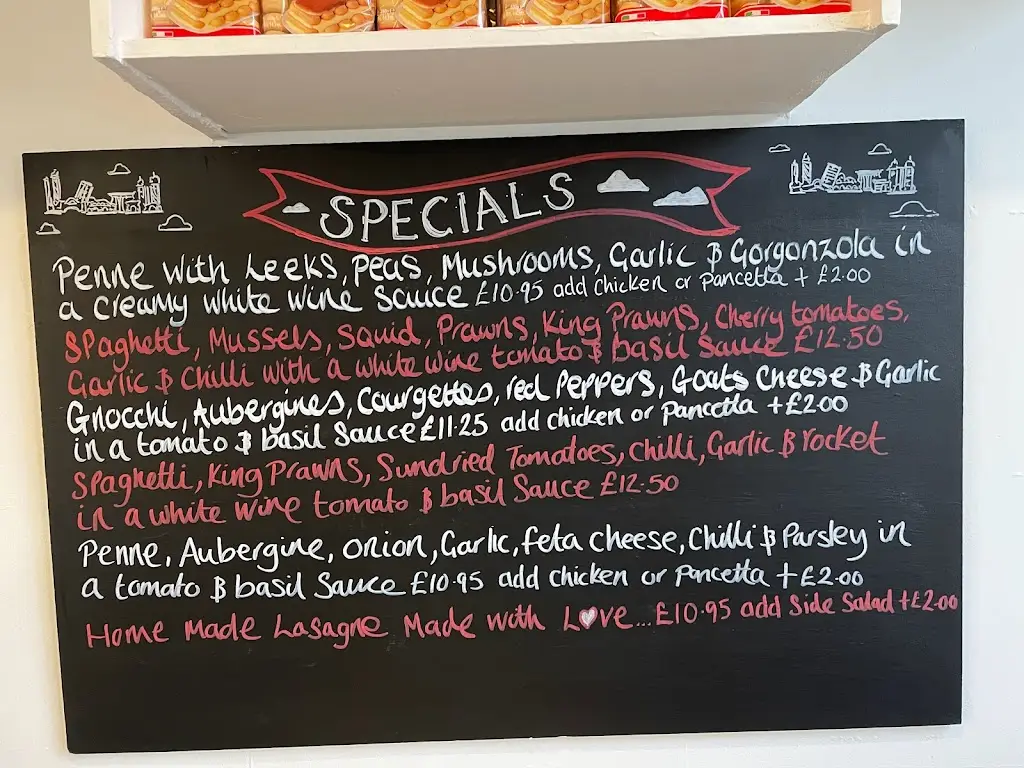 SPECIALS
Penne with Leeks, Peas, Mushrooms, Garlic & Gorgonzola in
a creamy white wine sauce £10.95 add chicken or pancetta + £2.00
Spaghetti, Mussels, Squid, Prawns, King Prawns, Cherry tomatoes,
Garlic & Chilli with a white wine tomato & basil Sauce £12.50
Gnocchi, Aubergines, Courgettes, red Peppers, Goats Cheese & Garlic
in a tomato & basil Sauce £11.25 add chicken or pancetta +£2.00
Spaghetti, King Prawns, Sundried Tomatoes, Chilli, Garlic & rocket
in a white wine tomato & basil Sauce £12.50
Penne, Aubergine, onion, Garlic, feta cheese, Chilli & Parsley in
a tomato & basil Sauce £10.95 add chicken or pancetta +£2.00
Home Made Lasagne Made with Love... £10.95 add Side Salad +£2.00